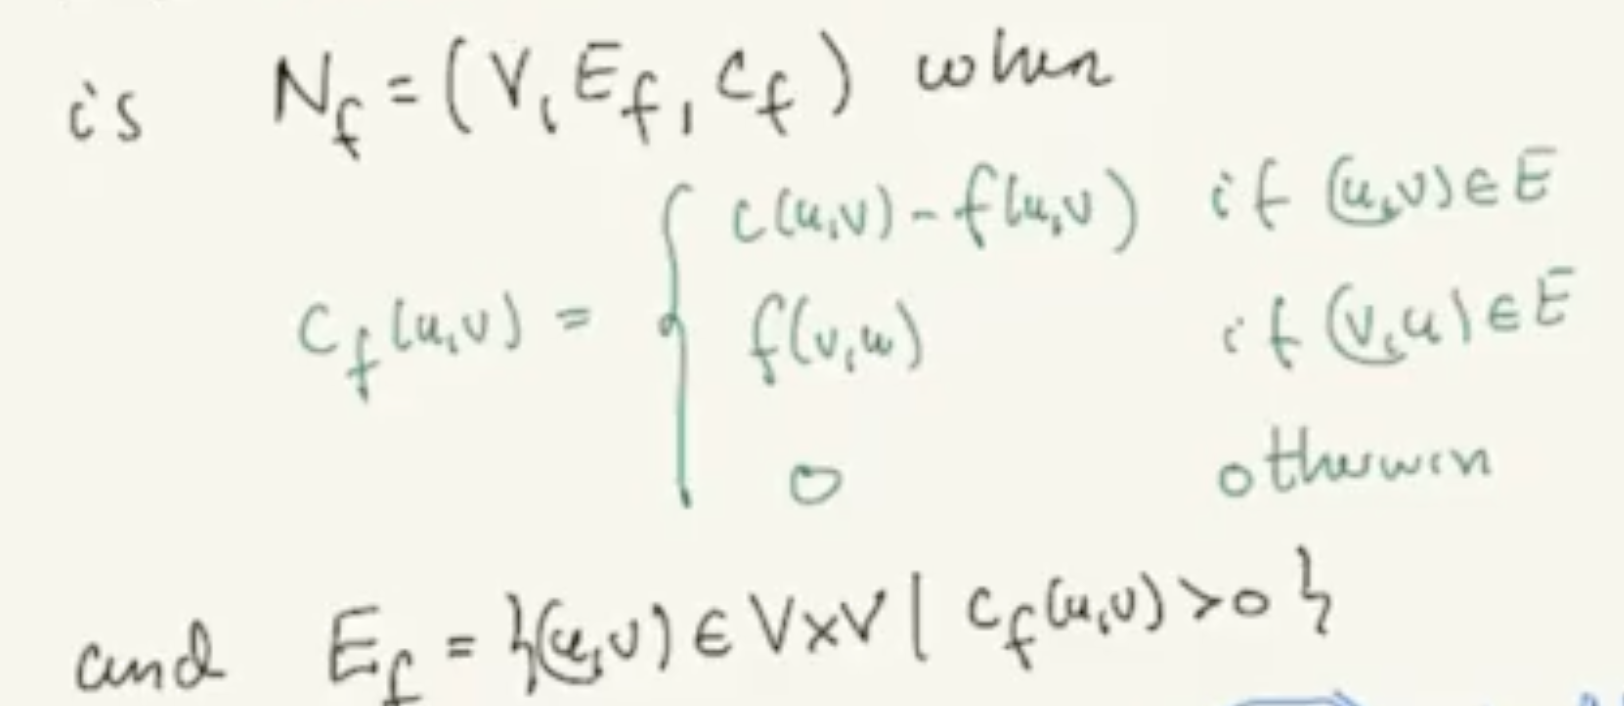 is N_f = (V, E_f, c_f) when
c_f(u,v) = { c(u,v) - f(u,v) if (u,v) ∈ E
f(v,u) if (v,u) ∈ E
0 otherwise
and E_f = {(u,v) ∈ V×V | c_f(u,v) > 0}